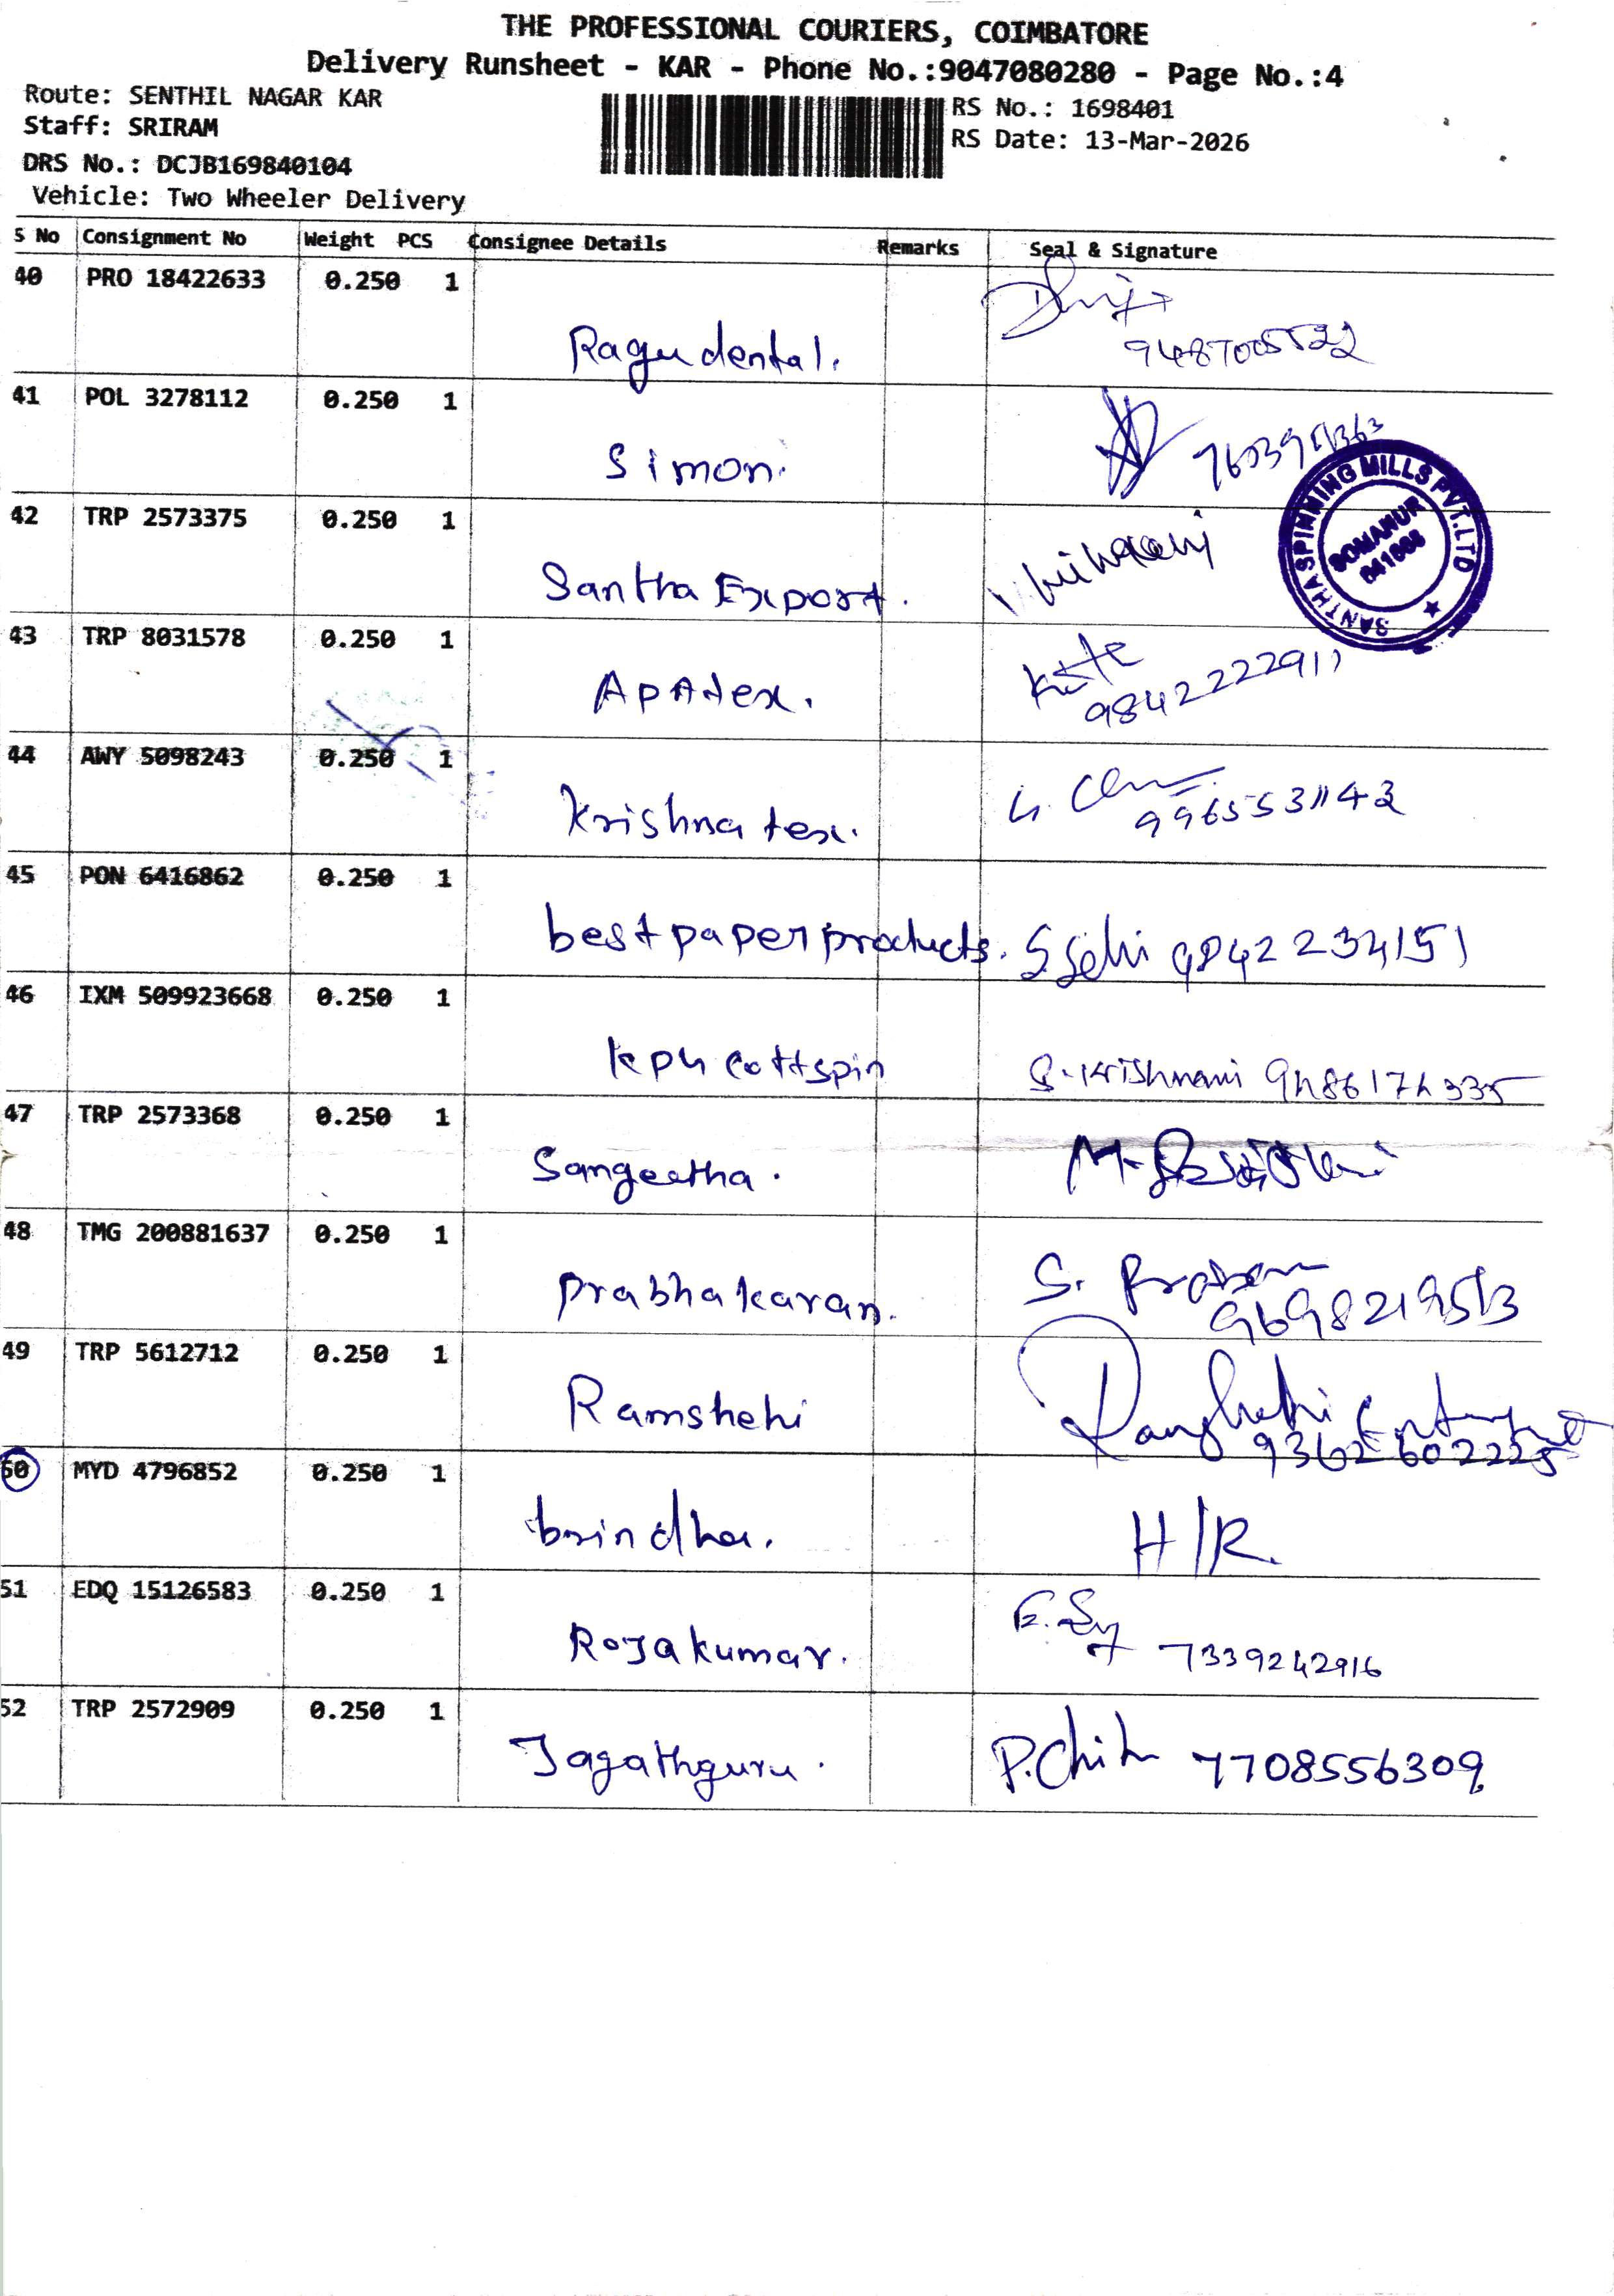 THE PROFESSIONAL COURIERS, COIMBATORE
Delivery Runsheet - KAR - Phone No.:9047080280 - Page No.:4
Route: SENTHIL NAGAR KAR
Staff: SRIRAM
DRS No.: DCJB169840104
Vehicle: Two Wheeler Delivery
RS No.: 1698401
RS Date: 13-Mar-2026
S No Consignment No Weight PCS Consignee Details Remarks Seal & Signature
40 PRO 18422633 0.250 1
Ragu dental.
41 POL 3278112 0.250 1
Simon.
42 TRP 2573375 0.250 1
Santha Export.
SANTHA SPINNING MILLS PVT.LTD
SOMANUR
43 TRP 8031578 0.250 1
9842222911
44 AWY 5098243 0.250 1
Krishna tex. 9965531142
45 PON 6416862 0.250 1
best paper products. 9842234151
46 IXM 509923668 0.250 1
cottspin
47 TRP 2573368 0.250 1
Sangeetha.
48 TMG 200881637 0.250 1
prabhakaran. S.
49 TRP 5612712 0.250 1
50 MYD 4796852 0.250 1
brindha. H/R.
51 EDQ 15126583 0.250 1
Rojakumar. 7339242916
52 TRP 2572909 0.250 1
Jagathguru. 7708556309